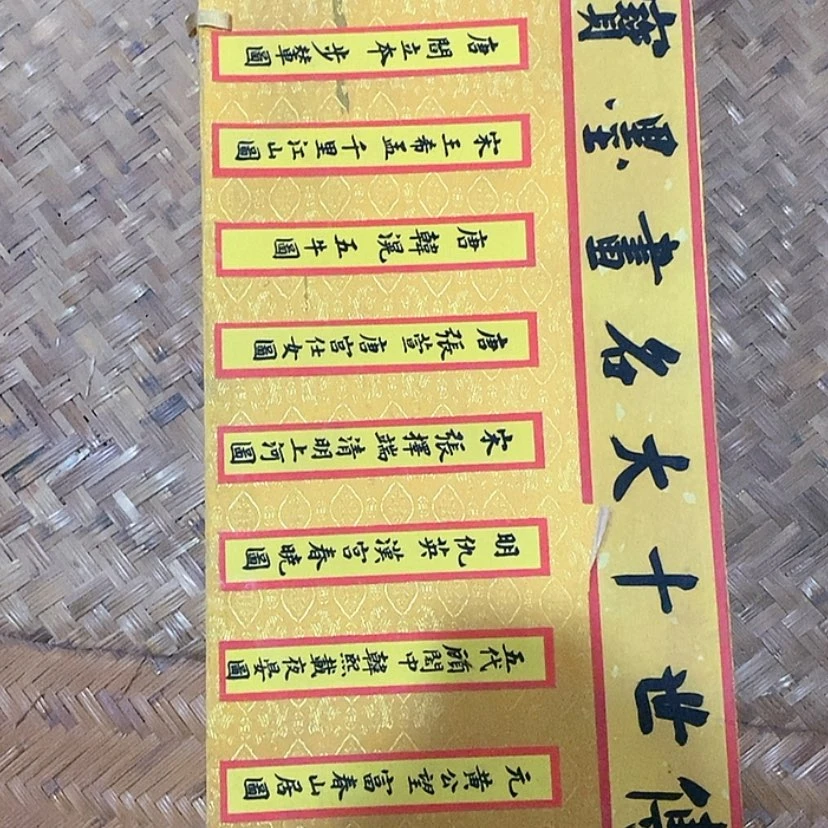 傳世十大名畫墨寶
元 黄公望 富春山居圖
五代 顧閎中 韓熙載夜晏圖
明 仇英 漢宫春曉圖
宋 張擇端 清明上河圖
唐 張萱 唐宫仕女圖
唐 韓滉 五牛圖
宋 王希孟 千里江山圖
唐 閻立本 步輦圖